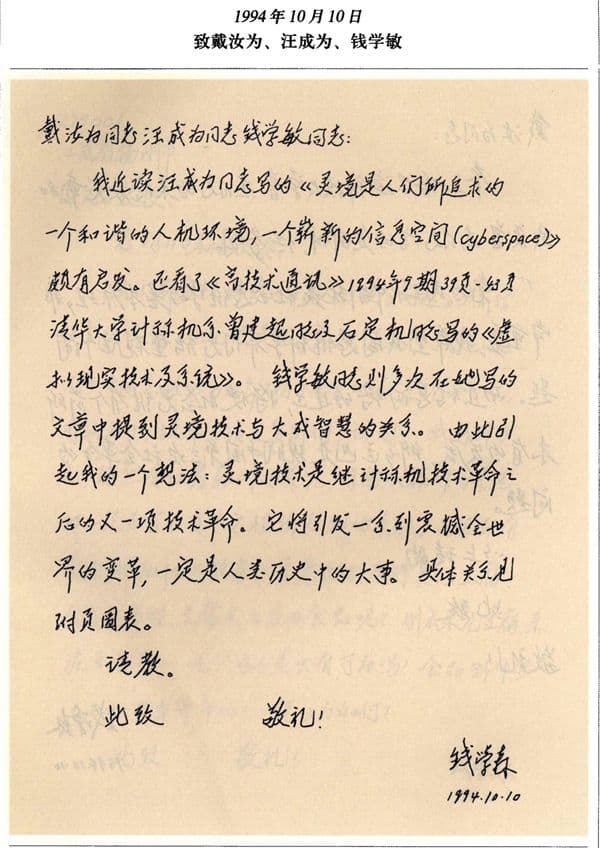 1994年10月10日
致戴汝为、汪成为、钱学敏
戴汝为同志汪成为同志钱学敏同志:
我近读汪成为同志写的《灵境是人们所追求的
一个和谐的人机环境,一个崭新的信息空间(cyberspace)》
颇有启发。还看了《高技术通讯》1994年9期39页-43页
清华大学计算机系曾建超同志及石定机同志写的《虚
拟现实技术及系统》。 钱学敏同志则多次在她写的
文章中提到灵境技术与大成智慧的关系。 由此引
起我的一个想法:灵境技术是继计算机技术革命之
后的又一项技术革命。它将引发一系列震撼全世
界的变革,一定是人类历史中的大事。 具体关系见
附页图表。
请教。
此致 敬礼!
钱学森
1994.10.10